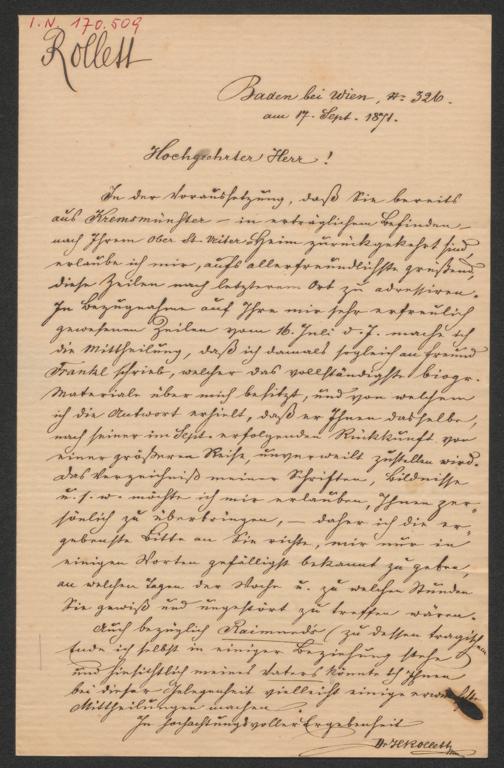 I.N. 170.509
Rollett
Baden bei Wien, N: 326.
am 17. Sept. 1871.
Hochgeehrter Herr!
In der Voraussetzung, daß Sie bereits
aus Kremsmünster – in erträglichem Befinden –
nach Ihrem Ober St. Veiter Heim zurückgekehrt sind,
erlaube ich mir, aufs allerfreundlichste grüßend,
diese Zeilen nach letzterem Ort zu adressiren.
In Bezugnahme auf Ihre mir sehr erfreulich
gewesenen Zeilen vom 16. Juli d. J. mache ich
die Mittheilung, daß ich damals sogleich an Freund
Frankl schrieb, welcher das vollständigste biogr.
Materiale über mich besitzt, und von welchem
ich die Antwort erhielt, daß er Ihnen dasselbe,
nach seiner im Sept. erfolgenden Rückkunft von
einer größeren Reise, unverweilt zustellen wird.
Das Verzeichniß meiner Schriften, Bildnisse
u. s. w. möchte ich mir erlauben, Ihnen per-
sönlich zu überbringen, – daher ich die er-
gebenste Bitte an Sie richte, mir nur in
einigen Worten gefälligst bekannt zu geben,
an welchen Tagen der Woche u. zu welchen Stunden
Sie gewiß und ungestört zu treffen wären.
Auch bezüglich Raimund's (zu dessen tragischem
Ende ich selbst in einiger Beziehung stehe)
und hinsichtlich meines Vaters könnte ich Ihnen
bei dieser Gelegenheit vielleicht einige
Mittheilungen machen.
In hochachtungsvoller Ergebenheit
Dr. H Rollett